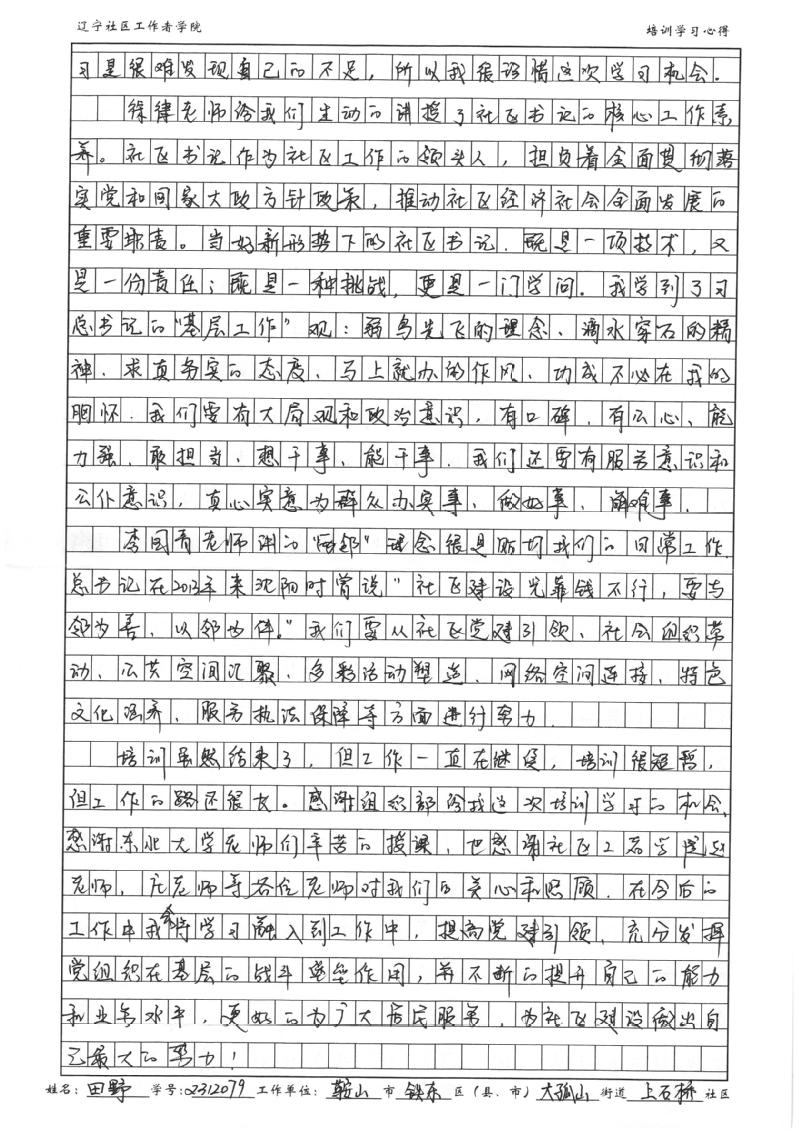 辽宁社区工作者学院 培训学习心得
习是很难发现自己的不足，所以我很珍惜这次学习机会。
徐律老师给我们生动的讲授了社区书记的核心工作素
养。社区书记作为社区工作的领头人，担负着全面贯彻落
实党和国家大政方针政策，推动社区经济社会全面发展的
重要职责。当好新形势下的社区书记，既是一项技术，又
是一份责任；既是一种挑战，更是一门学问。我学到了习
总书记的“基层工作”观：弱鸟先飞的理念、滴水穿石的精
神、求真务实的态度、马上就办的作风、功成不必在我的
胸怀。我们要有大局观和政治意识，有口碑、有公心、能
力强、敢担当、想干事、能干事。我们还要有服务意识和
公仆意识，真心实意为群众办实事、做好事、解难事。
李国青老师讲的“两邻”理念很是贴切我们的日常工作。
总书记在2013年来沈阳时曾说“社区建设光靠钱不行，要与
邻为善、以邻为伴。”我们要从社区党建引领、社会组织带
动、公共空间汇聚、多彩活动塑造、网络空间连接、特色
文化涵养、服务执法保障等方面进行努力。
培训虽然结束了，但工作一直在继续，培训很短暂，
但工作的路还很长。感谢组织部给我这次培训学习的机会，
感谢东北大学老师们辛苦的授课，也感谢社区工者学院赵
老师，庄老师等各位老师对我们的关心和照顾。在今后的
工作中我会将学习融入到工作中，提高党建引领，充分发挥
党组织在基层的战斗堡垒作用，并不断的提升自己的能力
和业务水平，更好的为广大居民服务，为社区建设做出自
己最大的努力！
姓名：田野 学号：02312079 工作单位：鞍山市铁东区（县、市）大孤山街道上石桥社区